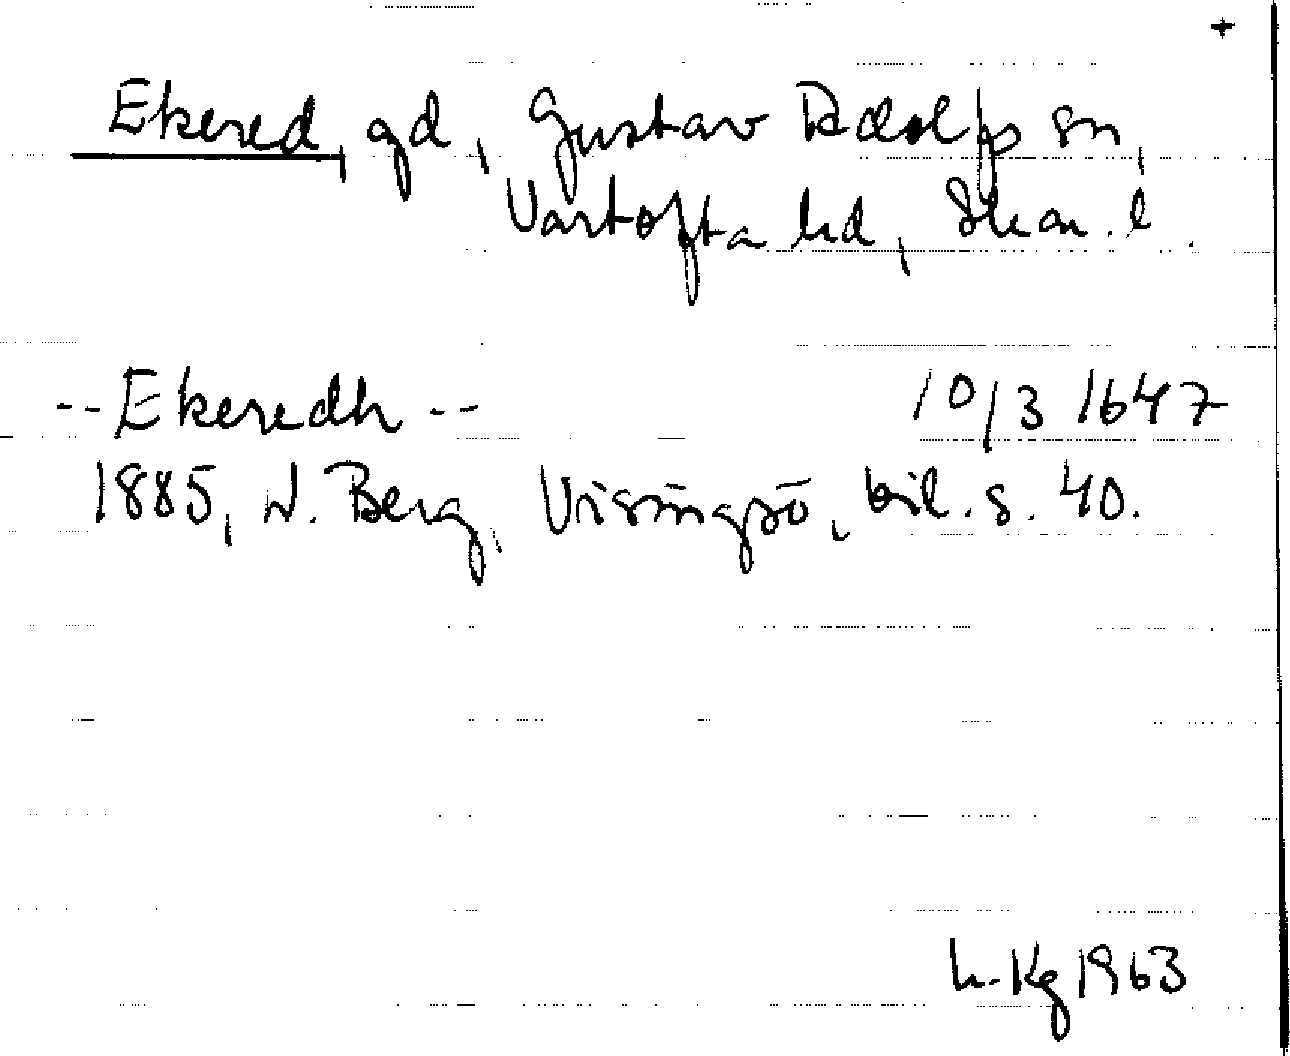 +
Ekered, gd, Gustav Adolfs sn,
Vartofta hd, Skar. l.
-- Ekeredh -- 10/3 1647
1885, W. Berg, Visingsö, bil. s. 40.
L-Kg 1963